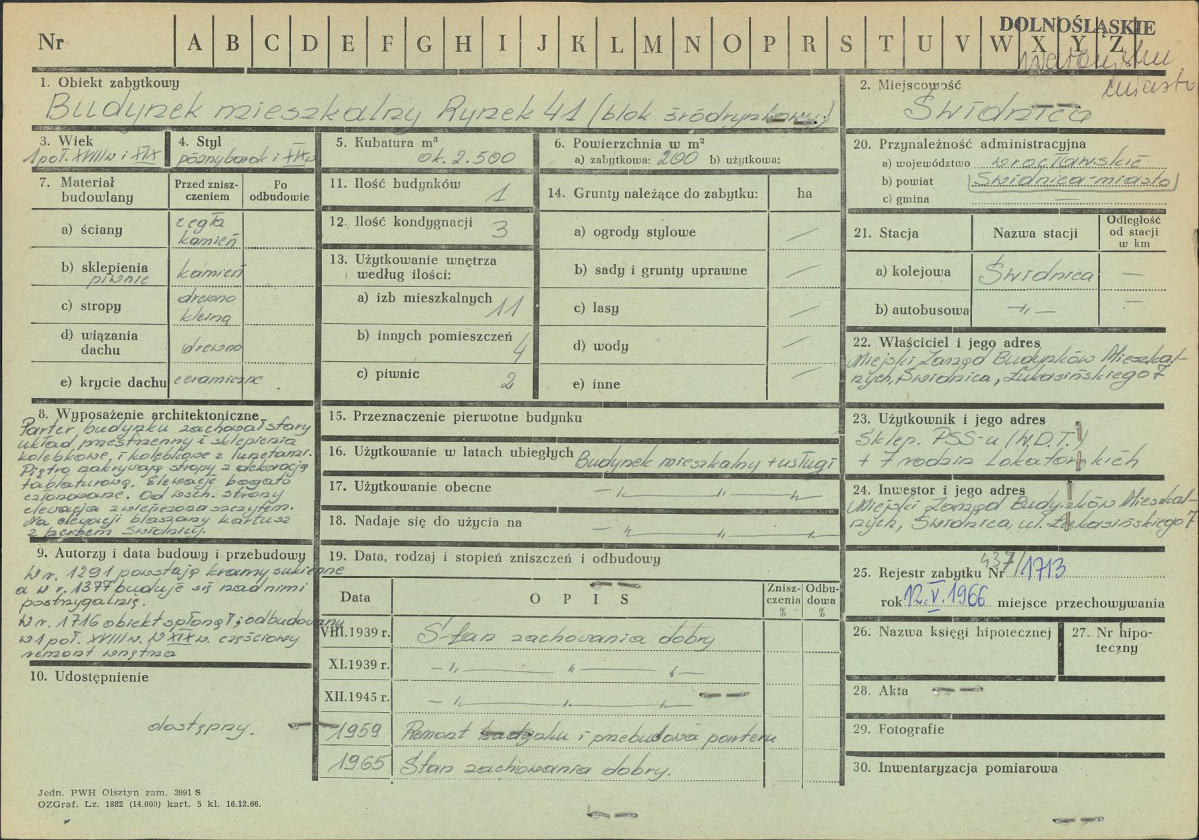 Nr A B C D E F G H I J K L M N O P R S T U V W X Y Z
DOLNOŚLĄSKIE
miasto
1. Obiekt zabytkowy
Budynek mieszkalny Rynek 41 (blok śródrynkowy)
2. Miejscowość
Świdnica
3. Wiek
1 poł. XVIII w i XIX
4. Styl
późnybarok i XIX w
5. Kubatura m³
ok. 2.500
6. Powierzchnia w m²
a) zabytkowa: 200 b) użytkowa:
7. Materiał budowlany
Przed zniszczeniem
Po odbudowie
a) ściany
cegła
kamień
b) sklepienia
piwnic
kamień
c) stropy
drewno
kleiną
d) wiązania dachu
drewno
e) krycie dachu
ceramiczne
11. Ilość budynków
1
12. Ilość kondygnacji
3
13. Użytkowanie wnętrza
według ilości:
a) izb mieszkalnych
11
b) innych pomieszczeń
4
c) piwnic
2
14. Grunty należące do zabytku:
ha
a) ogrody stylowe
—
b) sady i grunty uprawne
—
c) lasy
—
d) wody
—
e) inne
20. Przynależność administracyjna
a) województwo wrocławskie
b) powiat Świdnica-miasto
c) gmina —
21. Stacja
Nazwa stacji
Odległość
od stacji
w km
a) kolejowa
Świdnica
—
b) autobusowa
—„—
—
22. Właściciel i jego adres
Miejski Zarząd Budynków Mieszkal-
nych, Świdnica, Łukasińskiego 7
8. Wyposażenie architektoniczne
Parter budynku zachował stary
układ przestrzenny i sklepienia
kolebkowe, i kolebkowe z lunetami.
Piętro zakrywają stropy z dekoracją
tablaturową. Elewacje bogato
członowane. Od wsch. strony
elewacja zwieńczona szczytem.
Na elewacji blaszany kartusz
z herbem Świdnicy.
15. Przeznaczenie pierwotne budynku
16. Użytkowanie w latach ubiegłych Budynek mieszkalny + usługi
17. Użytkowanie obecne —„—„—„—
18. Nadaje się do użycia na —„—„—„—
23. Użytkownik i jego adres
Sklep. PSS-u /W.D.T./
+ 7 rodzin lokatorskich
24. Inwestor i jego adres
Miejski Zarząd Budynków Mieszkal-
nych, Świdnica, ul. Łukasińskiego 7
9. Autorzy i data budowy i przebudowy
W r. 1291 powstają kramy sukienne
a w r. 1377 buduje się nad nimi
postrzygalnię.
W r. 1716 obiekt spłonął i odbudowany
w 1 poł. XVIII w. W XIX w. częściowy
remont wnętrza
19. Data, rodzaj i stopień zniszczeń i odbudowy
Data
OPIS
Zniszczenia %
Odbudowa %
VIII.1939 r. Stan zachowania dobry
XI.1939 r. —„—„—„—
XII.1945 r. —„—„—„—
1959 Remont i przebudowa parteru
1965 Stan zachowania dobry.
25. Rejestr zabytku Nr 437/1713
rok 12.V.1966 miejsce przechowywania
26. Nazwa księgi hipotecznej
27. Nr hipo-
teczny
28. Akta
29. Fotografie
30. Inwentaryzacja pomiarowa
10. Udostępnienie
dostępny.
Jedn. PWH Olsztyn zam. 3991 S
OZGraf. Lz. 1882 (14.000) kart. 5 kl. 16.12.66.